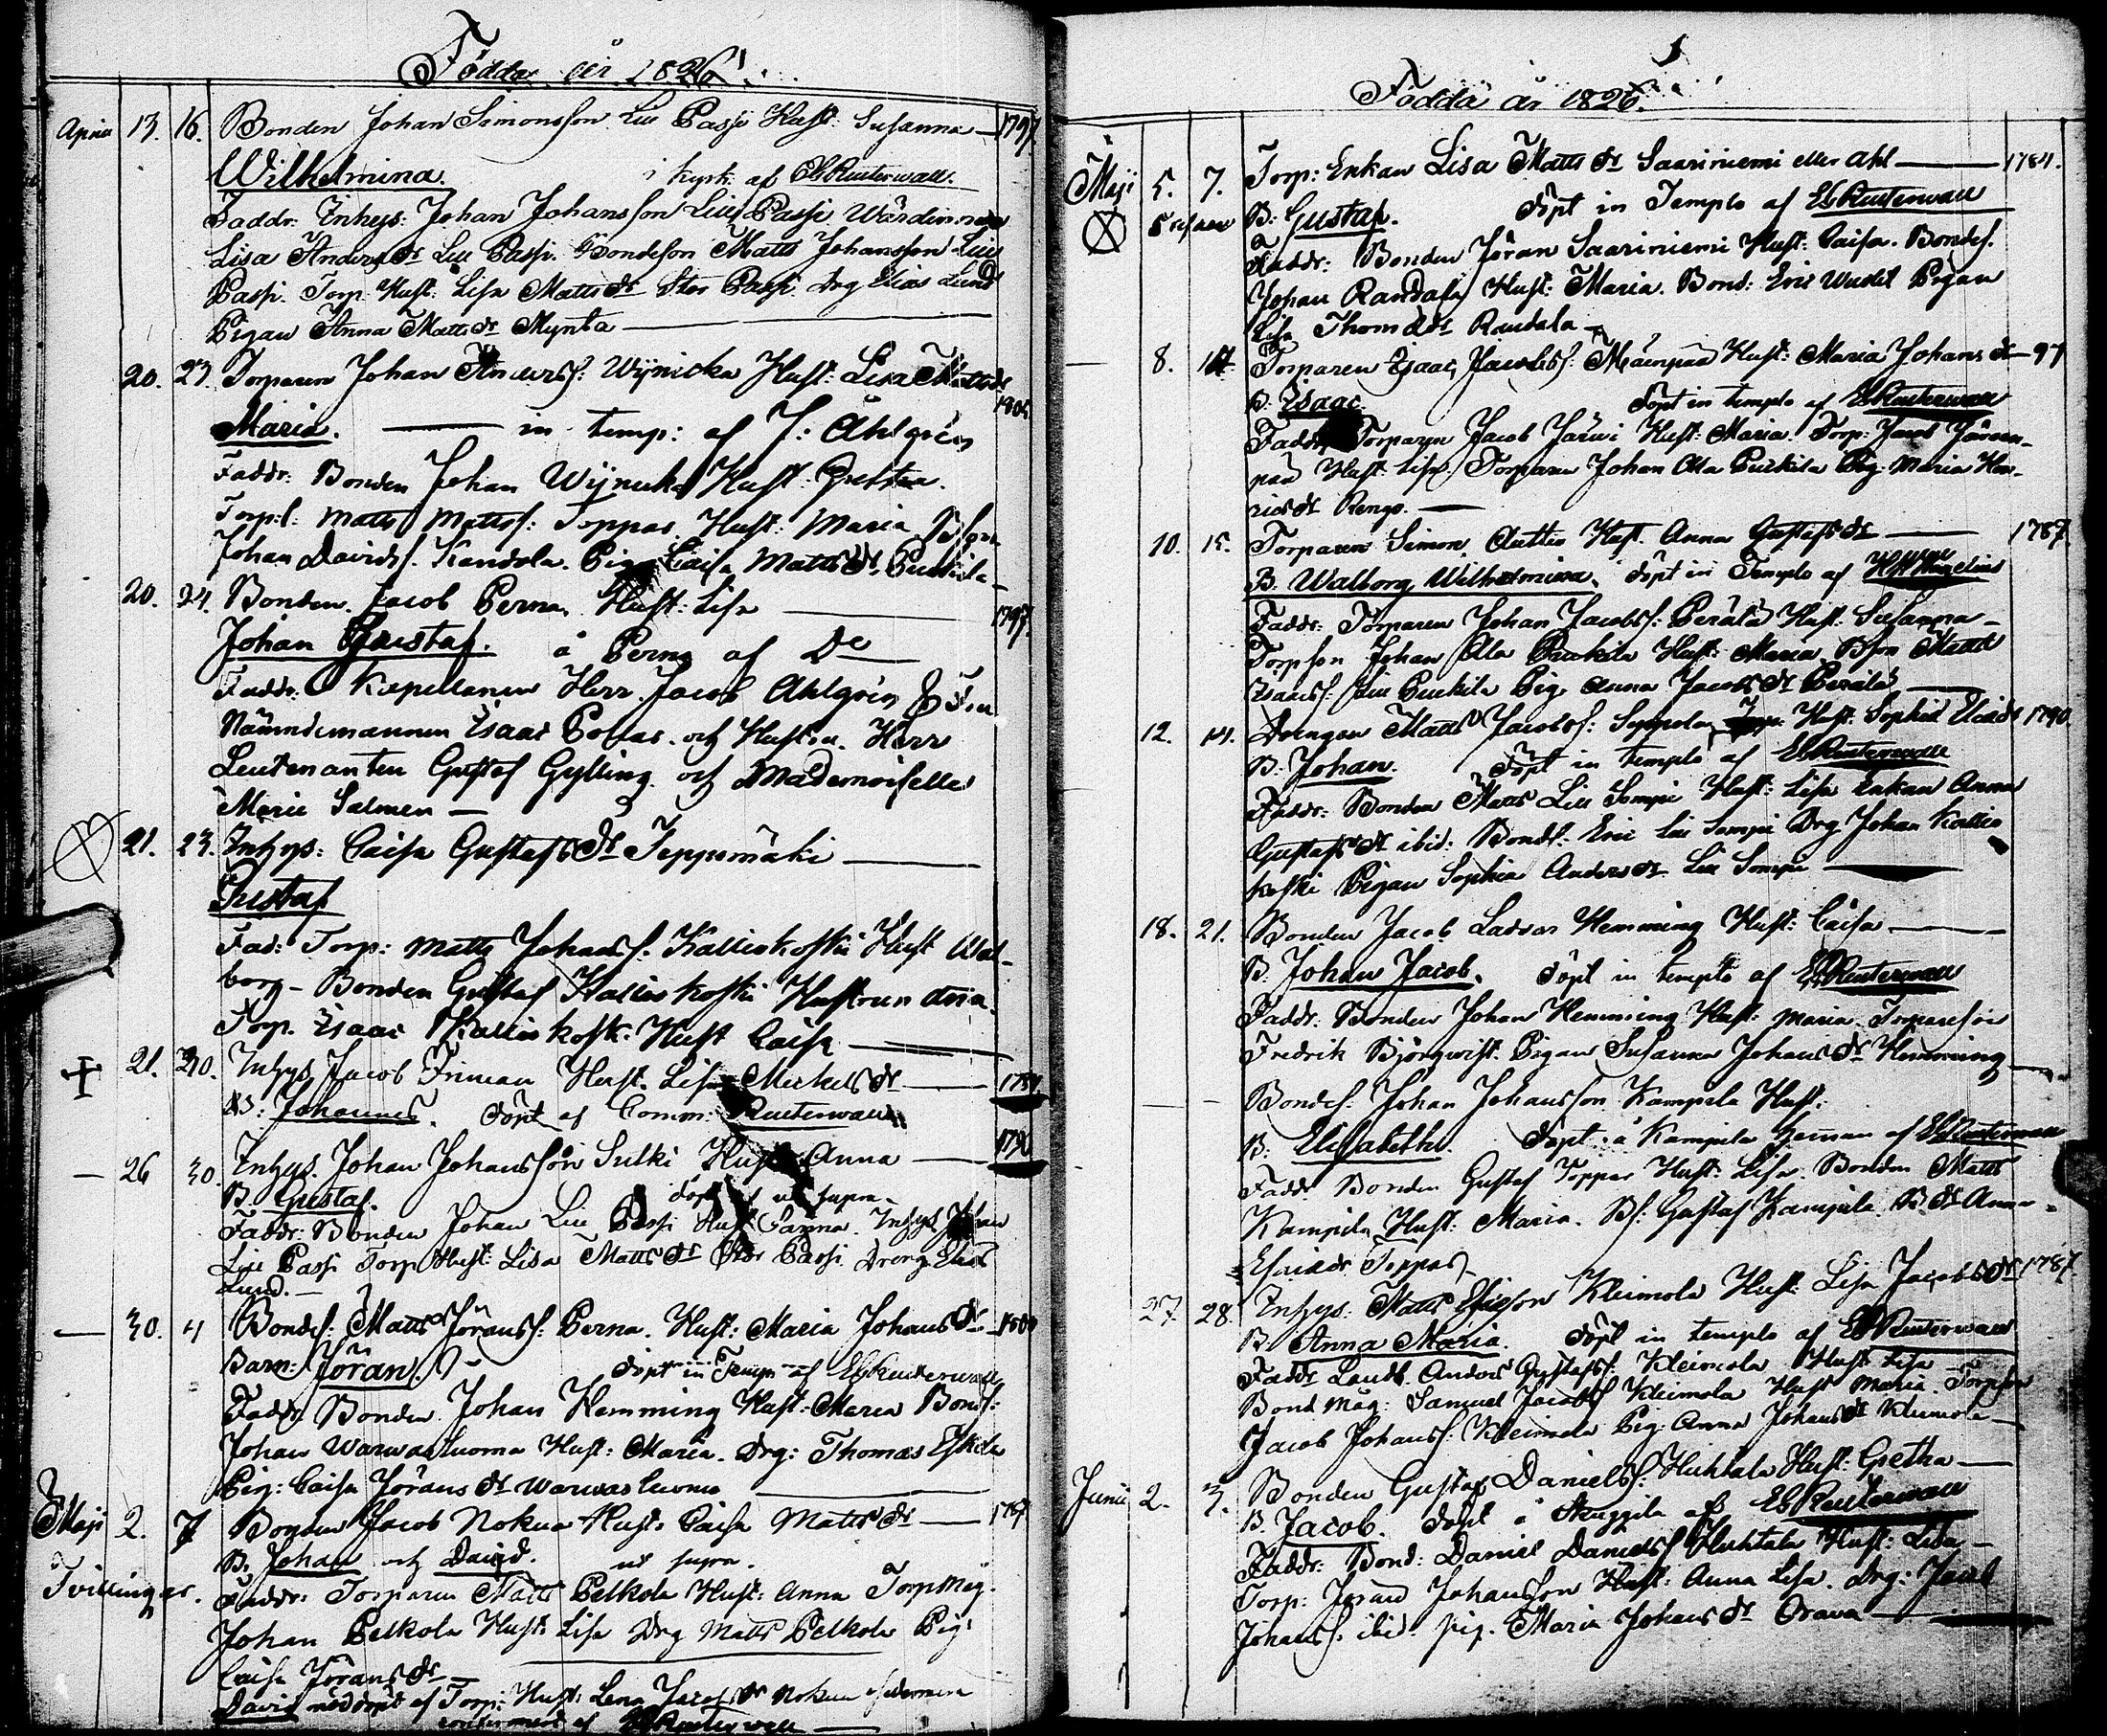 Födda år 1826
April 13. 16. Bonden Johan Simonsson Lill Passi Hust: Susanna — 1797.
Wilhelmina. i kyrk: af ElReuterwall.
Faddr. Inhys: Johan Johansson Lill Passi Wärdinnan
Lisa Anders dr Lill Passi. Bondeson Matts Johansson Lill
Passi. Torp. Hust: Lisa Matts dr Stor Passi. Drg Elias Lund
Pigan Anna Matts dr Mynta —
20. 23. Torparen Johan Anderss: Wijnicka Hust: Lisa Matts dr
1804
Maria. — in temp: af J: Ahlgrén
Faddr: Bonden Johan Wijnicka Hust: Gretha.
Torp: Matts Mattss: Toppar Hust: Maria
Johan Davidss. Kandola. Pig. Caisa Matts dr Puckila
20. 24. Bonden Jacob Perna Hust: Lisa — 1797.
Johan Gustaf. å Perna af Do
Faddr. Kapellanen Herr Jacob Ahlgrén & Fru
Nämndemannen Isaac och Hustru. Herr
Leutenanten Gustaf Gylling och Mademoiselle
Marie Salmen —
21. 23. Inhys: Caisa Gustafs dr Teppomäki —
Gustaf
Fad: Torp: Matts Johanss. Kallioskoski Hust Wal-
borg — Bonden Gustaf Kallioskoski Hustrun Ana.
Torp. Isaac Kalliokosk: Hust Caisa —
21. 30. Inhys Jacob Friman Hust. Lisa Mickels dr —
B: Johannes. döpt af Comm: Reuterwall
— 26 30. Inhys. Johan Johansson Sulki Hust Anna — 1790
B. Gustaf. döpt ut supra.
Faddr: Bonden Johan Lill Passi Hust Sanna. Inhys Johan
Lill Passi Torp Hust: Lisa Matts dr Stor Passi. Dreng Elias
Lund. —
— 30. 4 Bonds: Matts Jöranss: Perna. Hust: Maria Johans dr
Barn: Jöran. döpt in Temp af ElReuterwall
Faddr Bonden Johan Hemming Hust: Maria Bonds:
Johan Warwasluoma Hust: Maria. Drg: Thomas Eskila
Pig: Caisa Jörans dr Warwasluoma —
Maji 2. 7 Bonden Jacob Nokua Hust. Caisa Matts dr —
B. Johan och David. ut supra.
Tvillingar. Faddr: Torparen Matts Pelkola Hust: Anna Torp Måg.
Johan Pelkola Hust: Lisa Drg Matts Pelkola Pig:
Caisa Jörans dr —
David nöddöpt af Torp: Hust: Lena Jacobs dr Nokua
af ElReuterwall —
Födda år 1826.
Maji 5. 7. Torp: Enkan Lisa Matts dr Saariniemi eller Ahl — 1784.
B: Gustaf. döpt in Templo af ElReuterwall
Faddr: Bonden Jöran Saariniemi Hust: Caisa. Bondes.
Johan Randala Hust: Maria. Bond: Eric Pigan
Lisa Thomædr Randala —
— 8. 14. Torparen Isaac Jacobss: Mäenpää Hust: Maria Johans dr — 97
B: Isaac. döpt in templo af ElReuterwall
Faddr Torparen Jacob Järwi Hust: Maria. Torp: Jacob
pää Hust: Lisa. Torparen Johan Ala Puckila Pig: Maria Hen-
rics dr Rengo. —
10. 15. Torparen Simon Auttio Hust. Anna Gustafs dr — 1787.
B. Walborg Wilhelmina. döpt in Templo af
Faddr: Torparen Johan Jacobss: Perälä Hust: Susanna —
Torpson Johan Ala Puckila Hust: Maria Bson Matts
Isaacss: Lill Puckila Pig: Anna Jacobs dr Perälä —
12. 14. Drengen Matts Jacobss: Syppola Hust: Sophia Eliæ dr 1790.
B: Johan. döpt in templo af ElReuterwall
Faddr: Bonden Matts Lill Sompi Hust: Lisa Enkan Anna
Gustafs dr ibid: Bonds: Eric Lill Sompi Drg Johan Kallio
koski Pigan Sophia Anders dr Lill Sompi —
18. 21. Bonden Jacob Ladvas Hemming Hust: Caisa —
B. Johan Jacob. döpt in templo af ElReuterwall
Faddr: Bonden Johan Hemming Hust: Maria. Torpareson
Fredrik Björqwist. Pigan Susanna Johans dr Hemming —
— — Bondes: Johan Johansson Kampila Hust:
B: Elisabeth. döpt å Kampila hemman af ElReuterwall
Faddr Bonden Gustaf Toppar Hust: Lisa. Bonden Matts
Kampila Hust: Maria. Bs: Gustaf Kampila B. dr Anna
Esaiæ dr Toppar —
27. 28. Inhys: Matts Esaiason Kleimola Hust: Lisa Jacobs dr 1787.
B. Anna Maria. döpt in templo af ElReuterwall
Faddr Landb. Anders Gustafss: Kleimola Hust Lisa —
Bond Måg: Samuel Jacobss Kleimola Hust Maria. Torpson
Jacob Johanss: Kleimola Pig: Anna Johans dr Kleimola —
Junii 2. 3. Bonden Gustaf Danielss: Huhtala Hust: Gretha —
B. Jacob. döpt å Skuggila af ElReuterwall
Faddr: Bond: Daniel Danielss Huhtala Hust: Lisa —
Torp: Jöran Johansson Hust: Anna Lisa. Drg: Jacob
Johanss: ibid. pig. Maria Johans dr Orava —